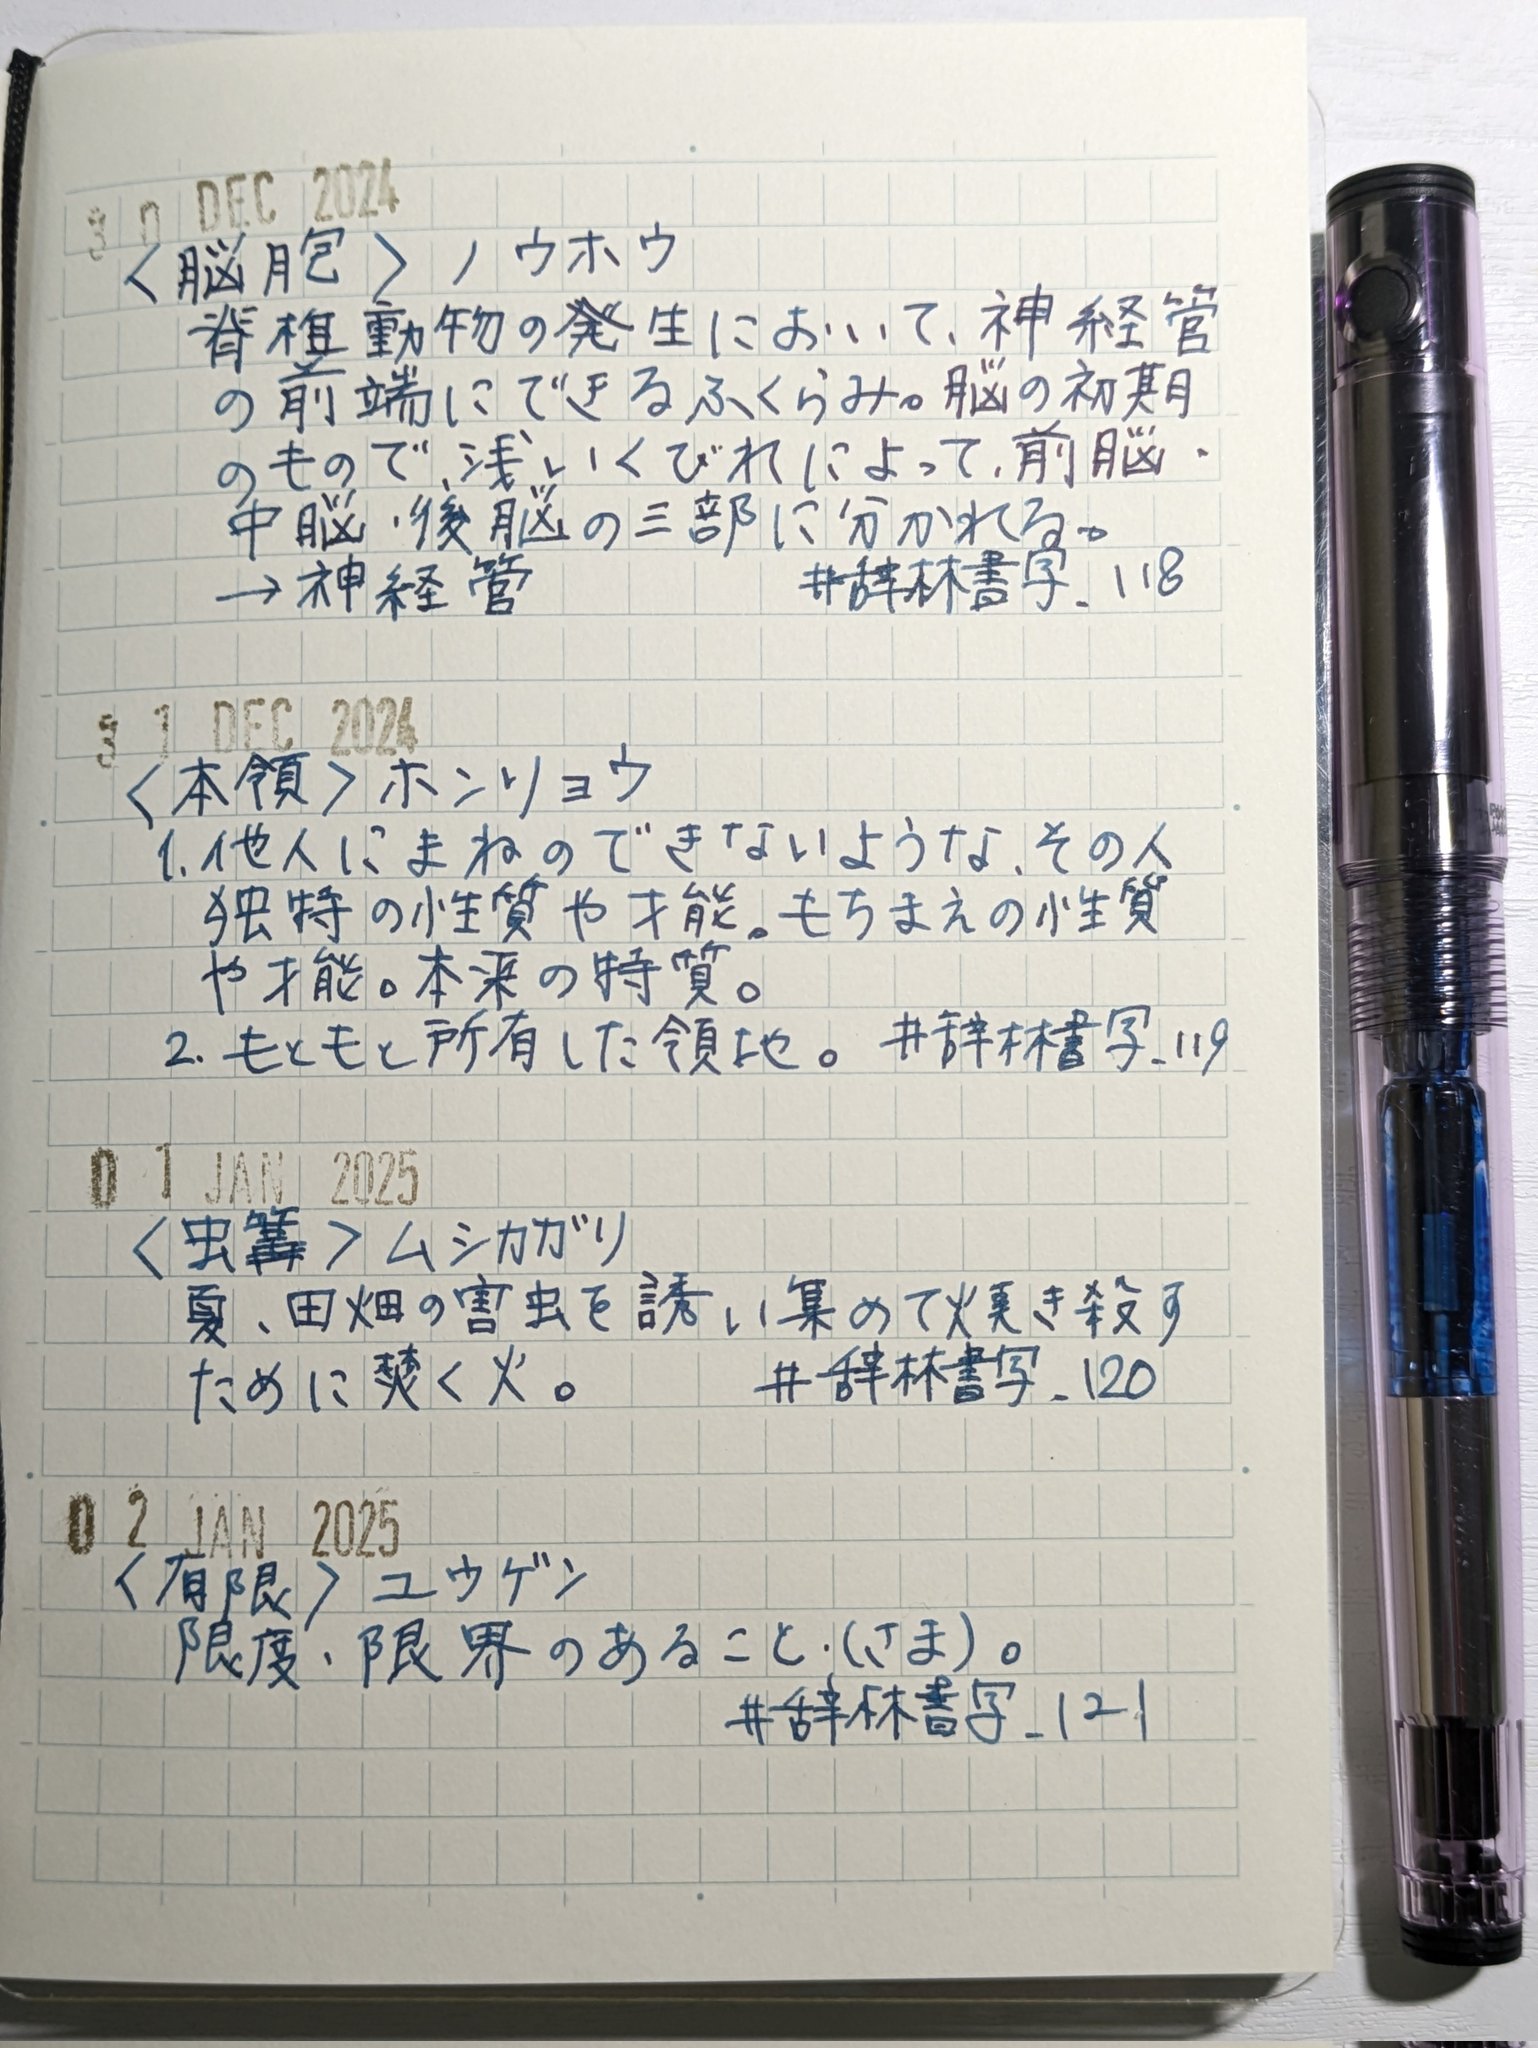 30 DEC 2024
〈脳胞〉ノウホウ
脊椎動物の発生において、神経管
の前端にできるふくらみ。脳の初期
のもので、浅いくびれによって、前脳・
中脳・後脳の三部に分かれる。
→神経管 #辞林書字_118
31 DEC 2024
〈本領〉ホンリョウ
1.他人にまねのできないような、その人
独特の性質や才能。もちまえの性質
や才能。本来の特質。
2.もともと所有した領地。 #辞林書字_119
01 JAN 2025
〈虫篝〉ムシカガリ
夏、田畑の害虫を誘い集めて焼き殺す
ために焚く火。 #辞林書字_120
02 JAN 2025
〈有限〉ユウゲン
限度、限界のあること・(さま)。
#辞林書字_121